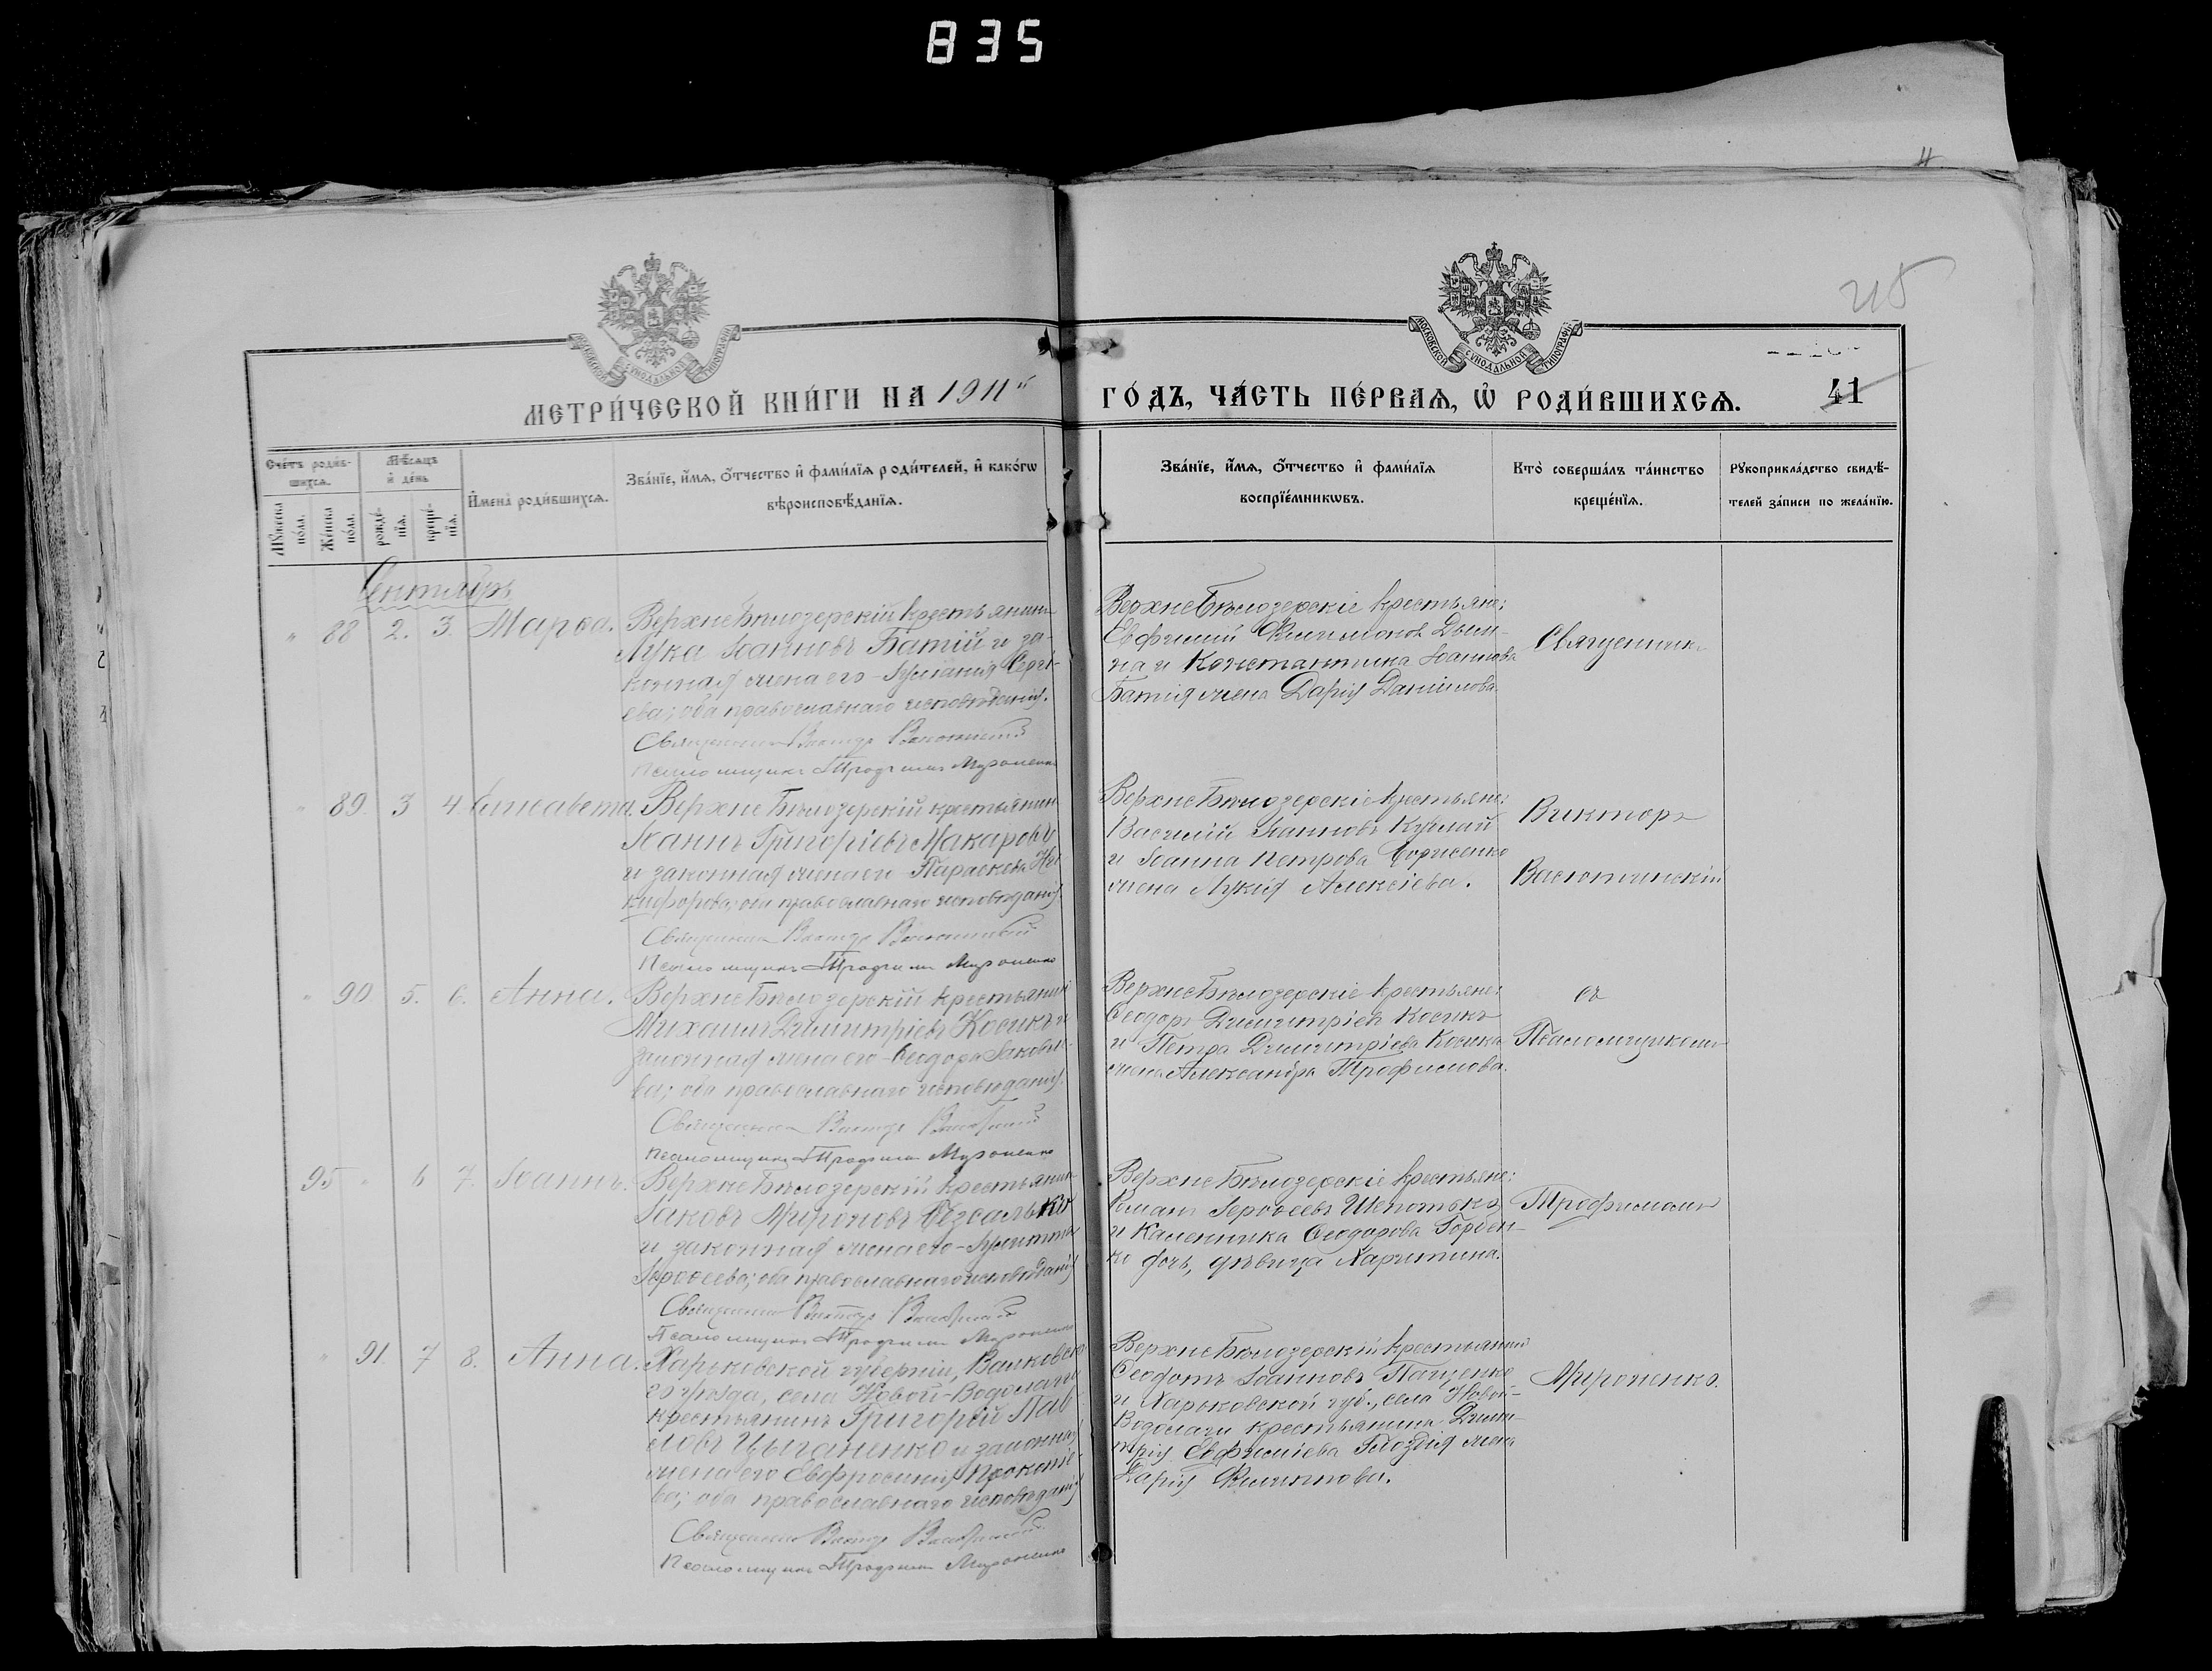 835
215
МОСКОВСКОЙ СѴНОДАЛЬНОЙ ТИПОГРАФІИ
МОСКОВСКОЙ СѴНОДАЛЬНОЙ ТИПОГРАФІИ
МЕТРИ́ЧЕСКОЙ КНИ́ГИ НА 1911й ГО́ДЪ, ЧА́СТЬ ПЕ́РВАѦ, Ѡ҆ РОДИ́ВШИХСѦ. 41
Сче́тъ роди́в-
шихсѧ.
Мꙋ́жеска по́ла.
Же́нска по́ла.
Мѣ́сѧцъ
и҆ де́нь
рожде́-
нїѧ.
креще́-
нїѧ.
И҆мена̀ роди́вшихсѧ.
Зва́нїе, и҆́мѧ, ѻ҆́тчество и҆ фами́лїѧ роди́телей, и҆ како́гѡ
вѣроисповѣ́данїѧ.
Зва́нїе, и҆́мѧ, ѻ҆́тчество и҆ фами́лїѧ
воспрїе́мникѡвъ.
Кто̀ соверша́лъ та́инство
креще́нїѧ.
Рꙋкоприкла́дство свидѣ́-
телей за́писи по жела́нїю.
Сентябрь
" 88 2. 3. Марѳа.
Верхнебѣлозерскій крестьянинъ
Лука Іоанновъ Батій и за-
конная жена его - Іуліанія Сергі-
ева; оба православнаго исповѣданія.
Священникъ Викторъ
Псаломщикъ Трофимъ Мироненко
Верхнебѣлозерскіе крестьяне:
Евфимій Филимоновъ Дым-
на и Константина Іоаннова
Батія жена Дарія Даніилова.
Священникъ
" 89. 3 4 Елисавета.
Верхнебѣлозерскій крестьянинъ
Іоаннъ Григоріевъ Макаровъ
и законная жена его Параскева Ни-
кифорова; оба православнаго исповѣданія.
Священникъ Викторъ
Псаломщикъ Трофимъ Мироненко
Верхнебѣлозерскіе крестьяне:
Василій Іоанновъ
и Іоанна Петрова Борисенко
жена Лукія Алексіева.
Викторъ
" 90 5. 6. Анна.
Верхнебѣлозерскій крестьянинъ
Михаилъ Димитріевъ Косикъ и
законная жена его - Ѳеодора Іаковле-
ва; оба православнаго исповѣданія.
Священникъ Викторъ
Псаломщикъ Трофимъ Мироненко
Верхнебѣлозерскіе крестьяне:
Ѳеодоръ Димитріевъ Косикъ
и Петра Димитріева Косика
жена Александра Трофимова.
съ
Псаломщикомъ
95 " 6 7. Іоаннъ.
Верхнебѣлозерскій крестьянинъ
Іаковъ Мироновъ Безсалько
и законная жена его - Іулитта
Іероѳеева; оба православнаго исповѣданія
Священникъ Викторъ
Псаломщикъ Трофимъ Мироненко
Верхнебѣлозерскіе крестьяне:
Романъ Іероѳеевъ Шепотько
и Каленика Ѳеодорова Горбен-
ко дочь, дѣвица Харитина.
Трофимомъ
" 91. 7 8. Анна.
Харьковской губерніи, Валковска-
го уѣзда, села Новой-Водолаги
крестьянинъ Григорій Пав-
ловъ Цыганенко и законная
жена его Евфросинія Прокопіе-
ва; оба православнаго исповѣданія
Священникъ Викторъ
Псаломщикъ Трофимъ Мироненко
Верхнебѣлозерскій крестьянинъ
Ѳеодотъ Іоанновъ Пащенко
и Харьковской губ., села Новой-
Водолаги крестьянина Дими-
трія Евфиміева Гвоздія жена
Дарія Филиппова.
Мироненко.